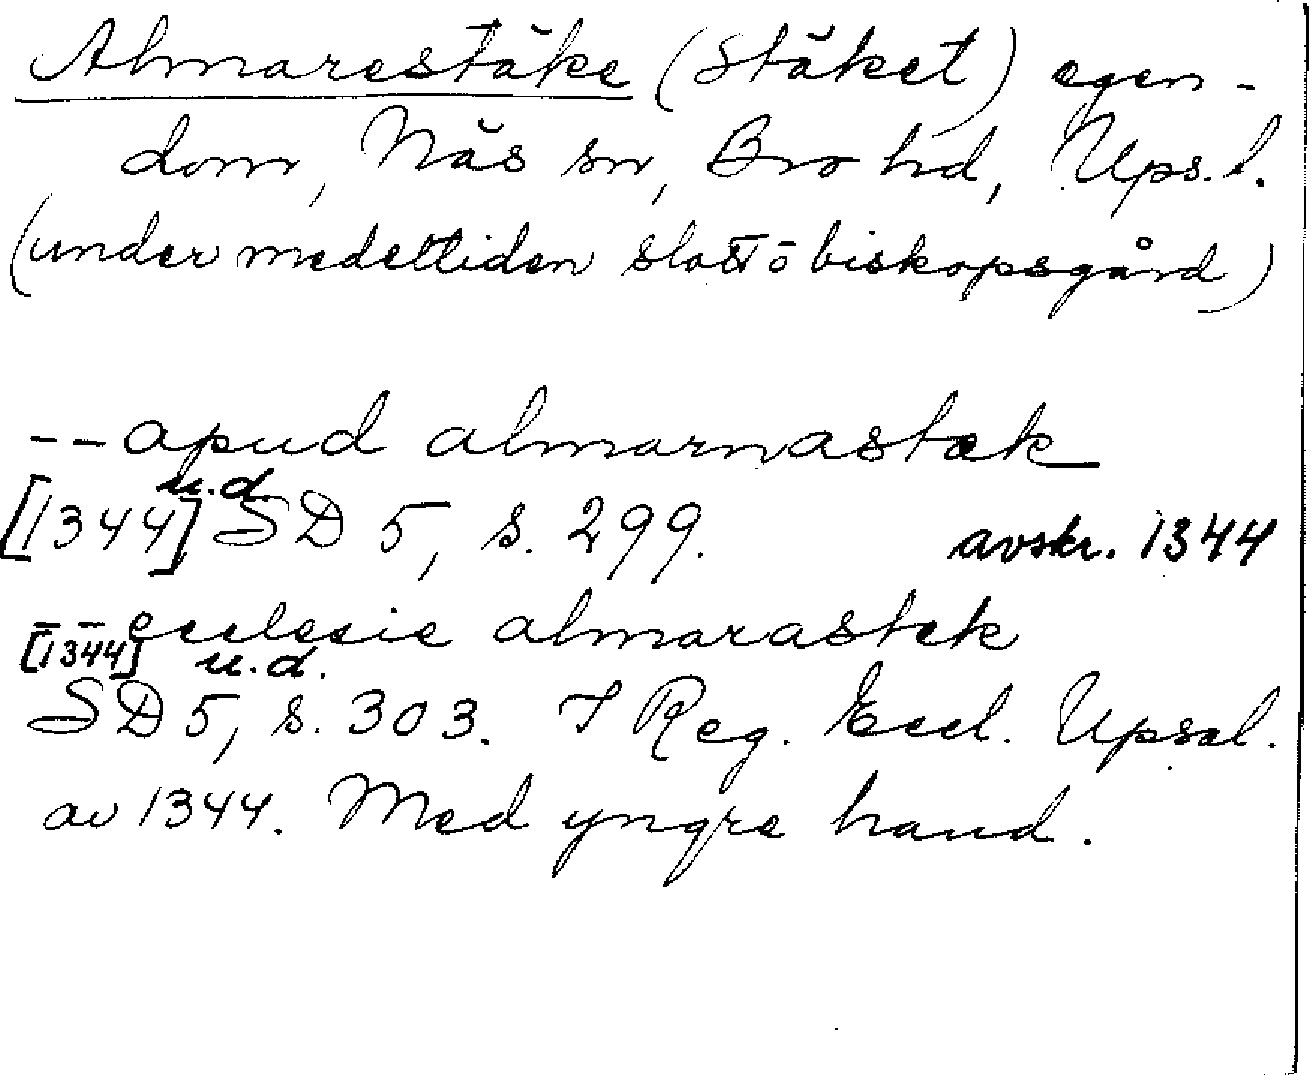 Almarestäke (Stäket) egen-
dom, Näs sn, Bro hd, Ups. l.
(under medeltiden slott o biskopsgård)
-- apud almarnastæk
u.d.
[1344] SD 5, s. 299. avskr. 1344
-- ecclesie almarastæk
[1344] u.d.
SD 5, s. 303. I Reg. Eccl. Upsal.
av 1344. Med yngre hand.